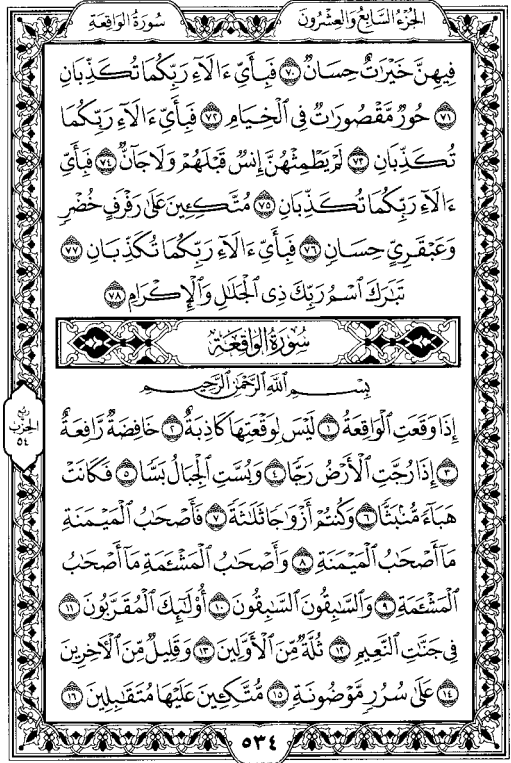 الجُزءُ السَّابِعُ وَالعِشْرُونَ
سُورَةُ الوَاقِعَةِ
فِيهِنَّ خَيْرَٰتٌ حِسَانٌ ٧٠ فَبِأَيِّ ءَالَآءِ رَبِّكُمَا تُكَذِّبَانِ
٧١ حُورٌ مَّقْصُورَٰتٌ فِي ٱلْخِيَامِ ٧٢ فَبِأَيِّ ءَالَآءِ رَبِّكُمَا
تُكَذِّبَانِ ٧٣ لَمْ يَطْمِثْهُنَّ إِنسٌ قَبْلَهُمْ وَلَا جَآنٌّ ٧٤ فَبِأَيِّ
ءَالَآءِ رَبِّكُمَا تُكَذِّبَانِ ٧٥ مُتَّكِـِٔينَ عَلَىٰ رَفْرَفٍ خُضْرٍ
وَعَبْقَرِيٍّ حِسَانٍ ٧٦ فَبِأَيِّ ءَالَآءِ رَبِّكُمَا تُكَذِّبَانِ ٧٧
تَبَٰرَكَ ٱسْمُ رَبِّكَ ذِي ٱلْجَلَٰلِ وَٱلْإِكْرَامِ ٧٨
سُورَةُ الوَاقِعَةِ
بِسْمِ ٱللَّهِ ٱلرَّحْمَٰنِ ٱلرَّحِيمِ
إِذَا وَقَعَتِ ٱلْوَاقِعَةُ ١ لَيْسَ لِوَقْعَتِهَا كَاذِبَةٌ ٢ خَافِضَةٌ رَّافِعَةٌ
٣ إِذَا رُجَّتِ ٱلْأَرْضُ رَجًّا ٤ وَبُسَّتِ ٱلْجِبَالُ بَسًّا ٥ فَكَانَتْ
هَبَآءً مُّنۢبَثًّا ٦ وَكُنتُمْ أَزْوَٰجًا ثَلَٰثَةً ٧ فَأَصْحَٰبُ ٱلْمَيْمَنَةِ
مَآ أَصْحَٰبُ ٱلْمَيْمَنَةِ ٨ وَأَصْحَٰبُ ٱلْمَشْـَٔمَةِ مَآ أَصْحَٰبُ
ٱلْمَشْـَٔمَةِ ٩ وَٱلسَّٰبِقُونَ ٱلسَّٰبِقُونَ ١٠ أُو۟لَٰٓئِكَ ٱلْمُقَرَّبُونَ ١١
فِي جَنَّٰتِ ٱلنَّعِيمِ ١٢ ثُلَّةٌ مِّنَ ٱلْأَوَّلِينَ ١٣ وَقَلِيلٌ مِّنَ ٱلْأٓخِرِينَ
١٤ عَلَىٰ سُرُرٍ مَّوْضُونَةٍ ١٥ مُّتَّكِـِٔينَ عَلَيْهَا مُتَقَٰبِلِينَ ١٦
ربع
الحزب
٥٤
٥٣٤